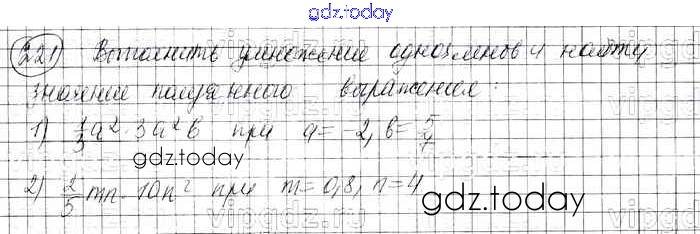 gdz.today
221) Выполнить умножение одночленов и найти
значение полученного выражения:
1) 1/3 a² · 3a² b при a = -2, b = 5/4
gdz.today
2) 2/5 mn · 10n² при m = 0,8, n = 4
gdz.today